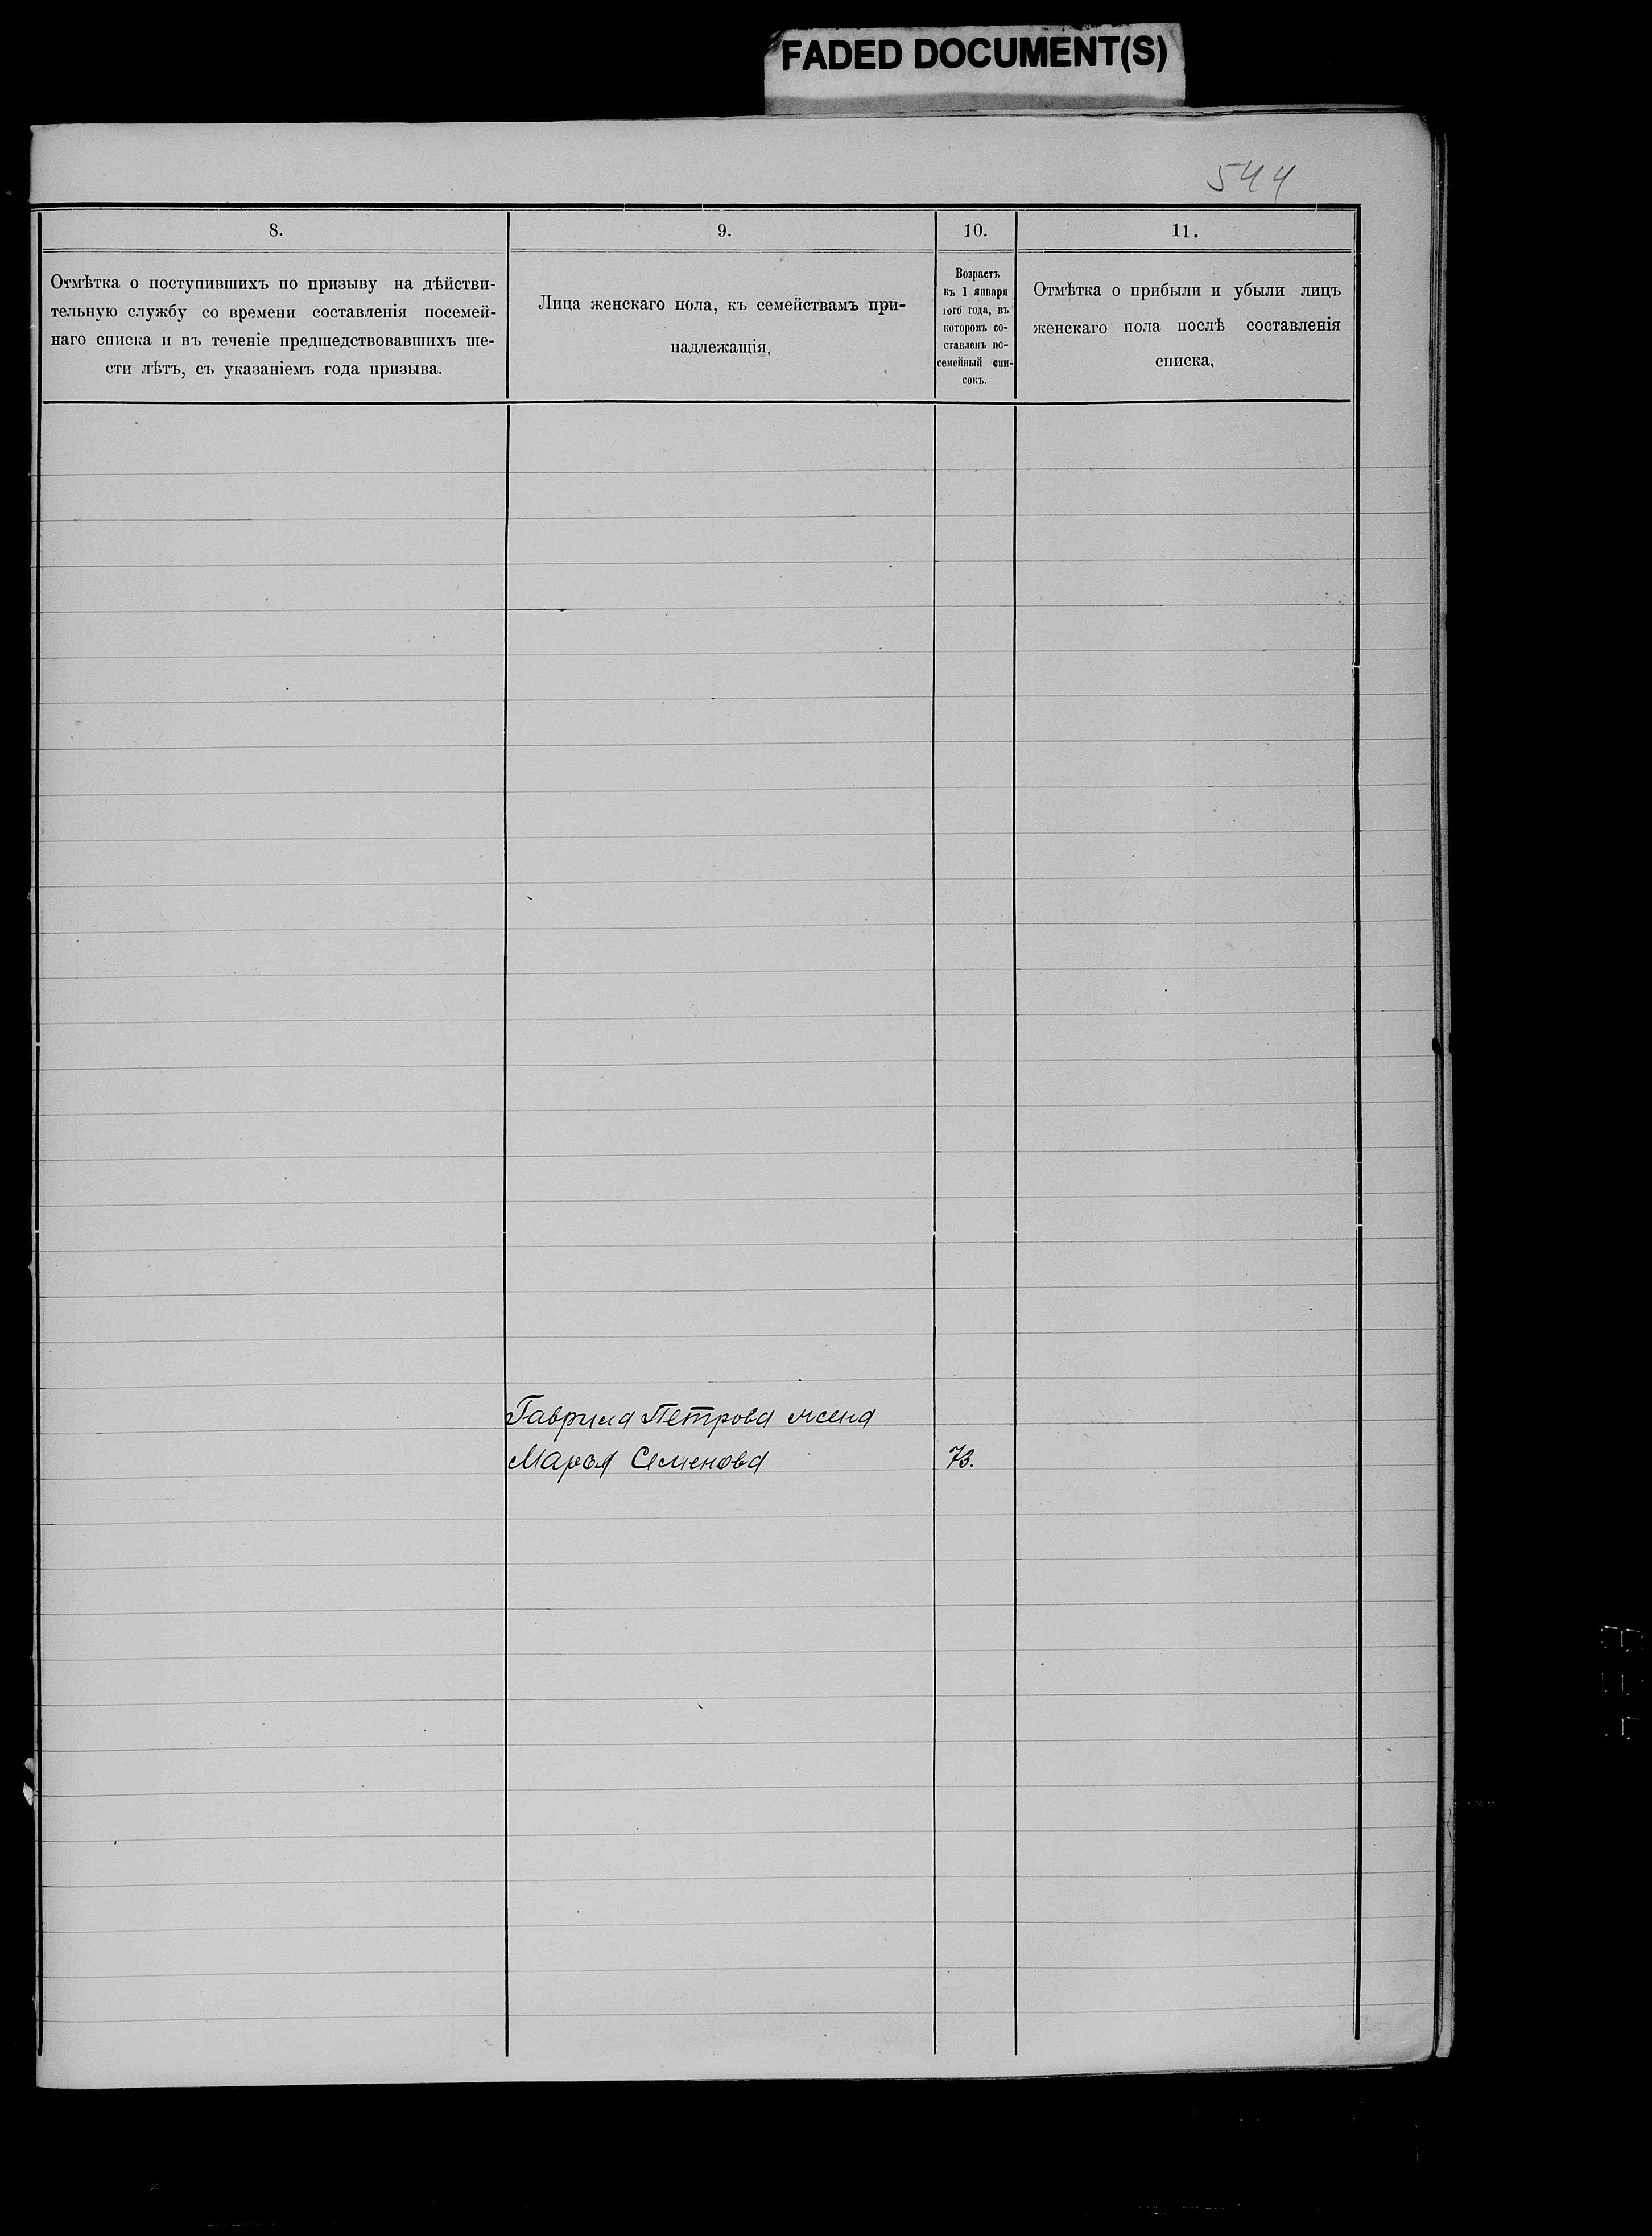 FADED DOCUMENT(S)
544
8.
9.
10.
11.
Отмѣтка о поступившихъ по призыву на дѣйстви-
тельную службу со времени составленія посемей-
наго списка и въ теченіе предшедствовавшихъ ше-
сти лѣтъ, съ указаніемъ года призыва.
Лица женскаго пола, къ семействамъ при-
надлежащія.
Возрастъ
къ 1 января
того года, въ
которомъ со-
ставленъ по-
семейный спи-
сокъ.
Отмѣтка о прибыли и убыли лицъ
женскаго пола послѣ составленія
списка.
Гаврила Петрова жена
Марья Семенова
73.